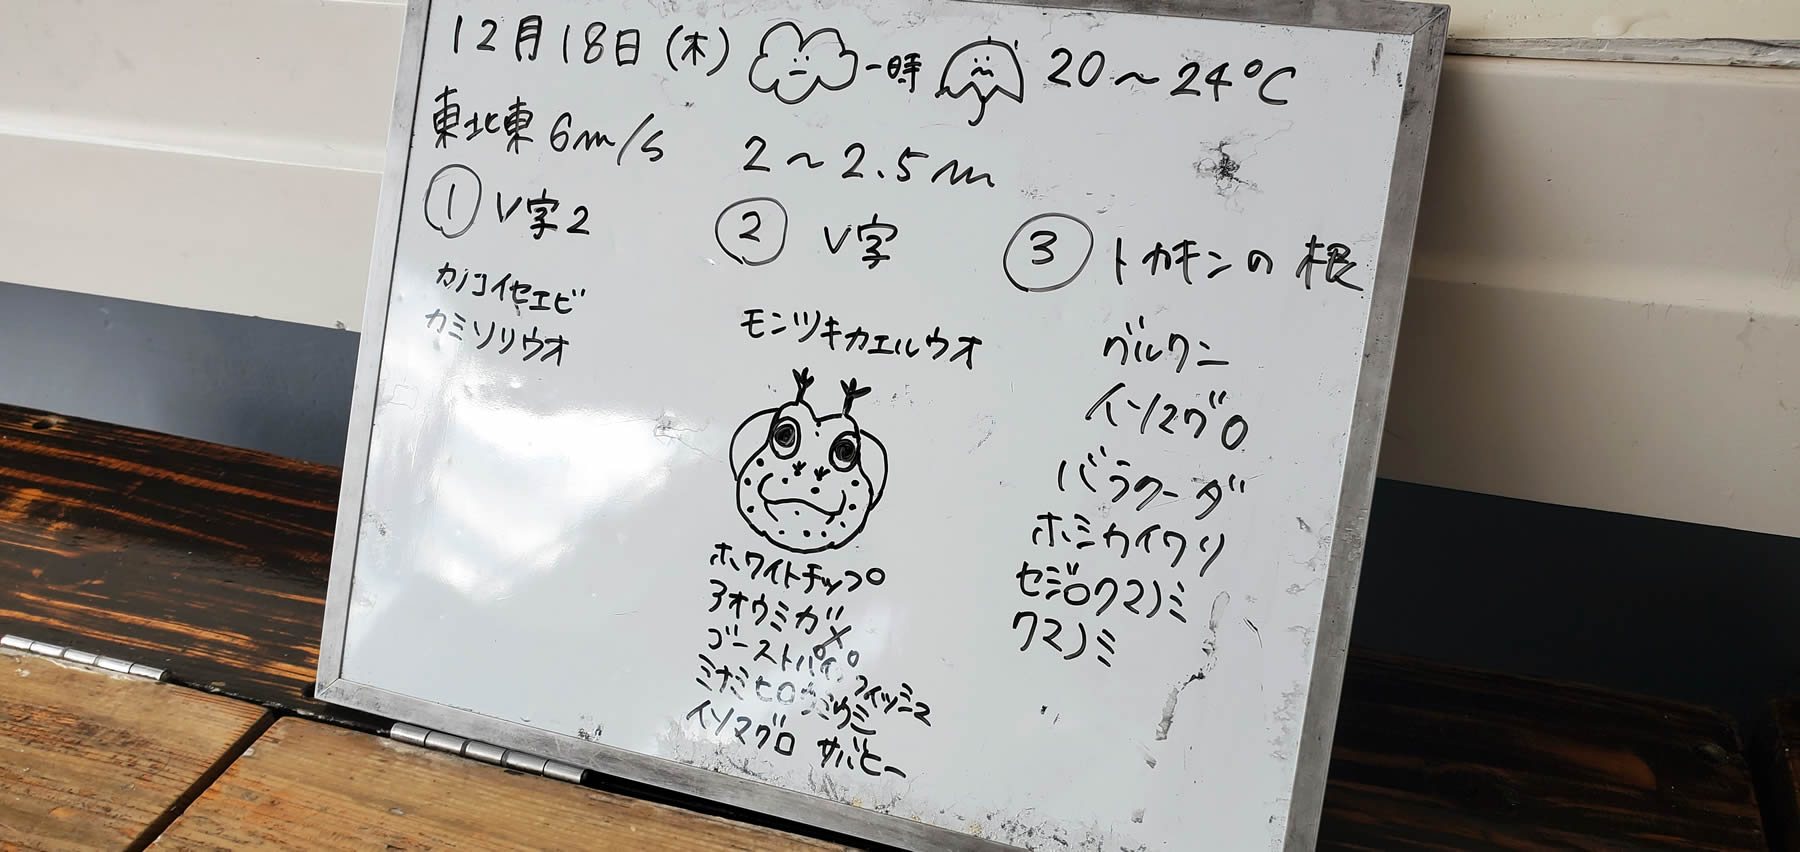 12月18日(木) 一時 20～24℃
東北東6m/s 2～2.5m
① V字2
カノコイセエビ
カミソリウオ
② V字
モンツキカエルウオ
ホワイトチップ
アオウミガメ
ゴーストパイプフィッシュ
ミナミヒロウミウミ
イソマグロ サバヒー
③ トカキンの根
グルクン
イソマグロ
バラクーダ
ホシカイワリ
セジロクマノミ
クマノミ